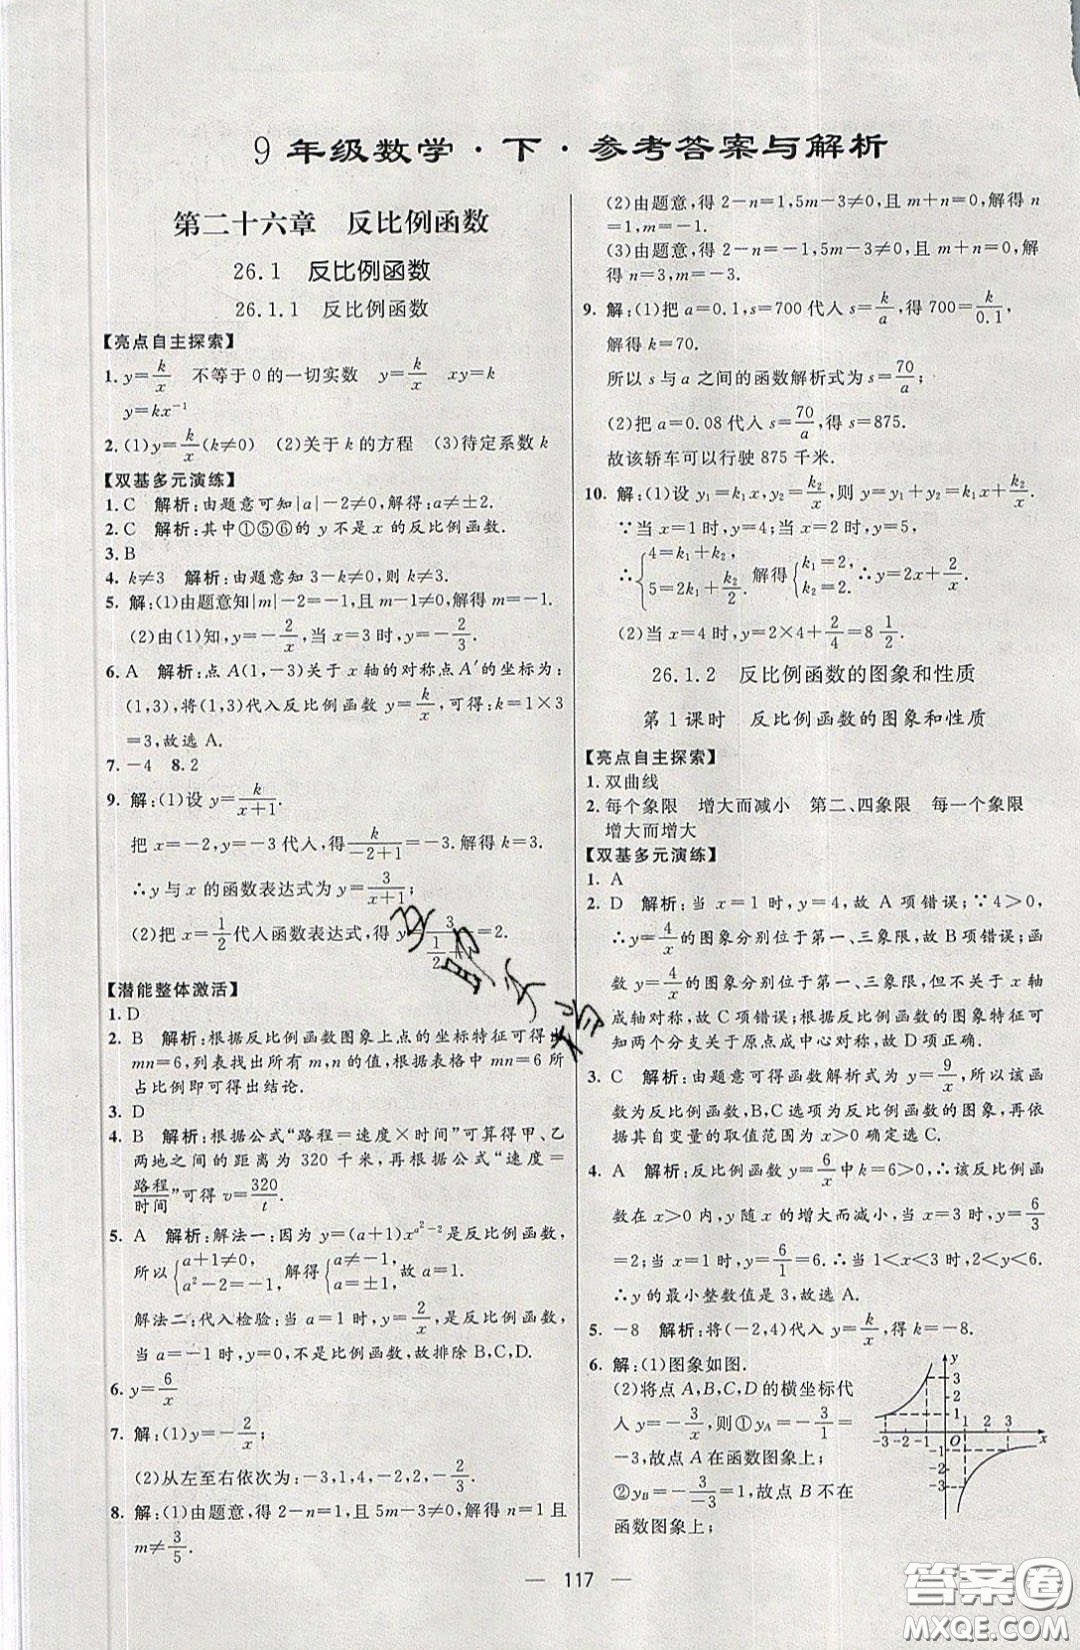 9 年级数学·下·参考答案与解析
第二十六章 反比例函数
26.1 反比例函数
26.1.1 反比例函数
【亮点自主探索】
1. y=k/x 不等于 0 的一切实数 y=k/x xy=k
y=kx⁻¹
2. (1)y=k/x(k≠0) (2)关于 k 的方程 (3)待定系数 k
【双基多元演练】
1. C 解析:由题意可知|a|-2≠0,解得:a≠±2.
2. C 解析:其中①⑤⑥的 y 不是 x 的反比例函数.
3. B
4. k≠3 解析:由题意知 3-k≠0,则 k≠3.
5. 解:(1)由题意知|m|-2=-1,且 m-1≠0,解得 m=-1.
(2)由(1)知,y=-2/x,当 x=3 时,y=-2/3.
6. A 解析:点 A(1,-3)关于 x 轴的对称点 A′的坐标为:
(1,3),将(1,3)代入反比例函数 y=k/x,可得:k=1×3
=3,故选 A.
7. -4 8. 2
9. 解:(1)设 y=k/(x+1).
把 x=-2,y=-3 代入,得:k/(-2+1)=-3.解得 k=3.
∴y 与 x 的函数表达式为 y=3/(x+1);
(2)把 x=1/2代入函数表达式,得 y=3/(1/2+1)=2.
【潜能整体激活】
1. D
2. B 解析:根据反比例函数图象上点的坐标特征可得出
mn=6,列表找出所有 m,n 的值,根据表格中 mn=6 所
占比例即可得出结论.
3. D
4. B 解析:根据公式“路程=速度×时间”可算得甲、乙
两地之间的距离为 320 千米,再根据公式“速度=
路程/时间”可得 v=320/t.
5. A 解析:解法一:因为 y=(a+1)x^(a²-2)是反比例函数,
所以{a+1≠0, a²-2=-1, 解得{a≠-1, a=±1, 故 a=1.
解法二:代入检验:当 a=1 时,y=2/x,是反比例函数,
当 a=-1 时,y=0,不是反比例函数,故排除 B,C,D.
6. y=6/x
7. 解:(1)y=-2/x;
(2)从左至右依次为:-3,1,4,-2,2,-2/3.
8. 解:(1)由题意,得 2-n=1,且 5m-3≠0,解得 n=1 且
m≠3/5.
(2)由题意,得 2-n=1,5m-3≠0,且 m+n=0,解得 n
=1,m=-1.
(3)由题意,得 2-n=-1,5m-3≠0,且 m+n=0,解得
n=3,m=-3.
9. 解:(1)把 a=0.1,s=700 代入 s=k/a,得 700=k/0.1,
解得 k=70.
所以 s 与 a 之间的函数解析式为 s=70/a;
(2)把 a=0.08 代入 s=70/a,得 s=875.
故该轿车可以行驶 875 千米.
10. 解:(1)设 y₁=k₁x,y₂=k₂/x,则 y=y₁+y₂=k₁x+k₂/x.
∵当 x=1 时,y=4;当 x=2 时,y=5,
∴{4=k₁+k₂, 5=2k₁+k₂/2. 解得{k₁=2, k₂=2. ∴y=2x+2/x.
(2)当 x=4 时,y=2×4+2/4=8 1/2.
26.1.2 反比例函数的图象和性质
第 1 课时 反比例函数的图象和性质
【亮点自主探索】
1. 双曲线
2. 每个象限 增大而减小 第二、四象限 每一个象限
增大而增大
【双基多元演练】
1. A
2. D 解析:当 x=1 时,y=4,故 A 项错误;∵4>0,
∴y=4/x的图象分别位于第一、三象限,故 B 项错误;函
数 y=4/x的图象分别位于第一、三象限,不关于 x 轴
成轴对称,故 C 项错误;根据反比例函数的图象特征可
知两个分支关于原点成中心对称,故 D 项正确.
3. C 解析:由题意可得函数解析式为 y=9/x,所以该函
数为反比例函数,B,C 选项为反比例函数的图象,再依
据其自变量的取值范围为 x>0 确定选 C.
4. A 解析:反比例函数 y=6/x中 k=6>0,∴该反比例函
数在 x>0 内,y 随 x 的增大而减小,当 x=3 时,y=6/3
=2;当 x=1 时,y=6/1=6.∴当 1<x<3 时,2<y<6.
∴y 的最小整数值是 3,故选 A.
5. -8 解析:将(-2,4)代入 y=k/x,得 k=-8.
6. 解:(1)图象如图.
(2)将点 A,B,C,D 的横坐标代
入 y=-3/x,则①y_A=-3/1=
-3,故点 A 在函数图象上;
②y_B=-3/-3=1,故点 B 不在
函数图象上;
y
3
2
1
-3 -2 -1 O 1 2 3 x
-1
-2
-3
117
答案圈
MXQE.COM